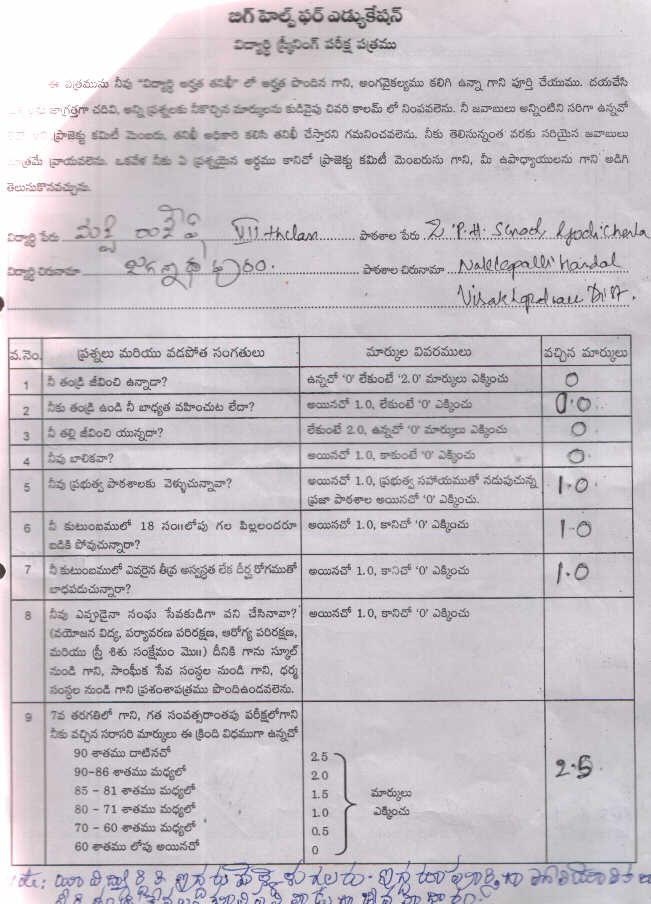 బిగ్ హెల్ప్ ఫర్ ఎడ్యుకేషన్
విద్యార్థి స్క్రీనింగ్ పరీక్ష పత్రము
ఈ పత్రమును నీవు "విద్యార్థి అర్హత తనిఖీ" లో అర్హత పొందిన గాని, అంగవైకల్యము కలిగి ఉన్నా గాని పూర్తి చేయుము. దయచేసి
జాగ్రత్తగా చదివి, అన్ని ప్రశ్నలకు నీకొచ్చిన మార్కులను కుడివైపు చివరి కాలమ్ లో నింపవలెను. నీ జవాబులు అన్నింటిని సరిగా ఉన్నవో
ప్రాజెక్టు కమిటీ మెంబరు, తనిఖీ అధికారి కలిసి తనిఖీ చేస్తారని గమనించవలెను. నీకు తెలిసున్నంత వరకు సరియైన జవాబులు
వ్రాయవలెను. ఒకవేళ నీకు ఏ ప్రశ్నయైన అర్థము కానిచో ప్రాజెక్టు కమిటీ మెంబరును గాని, మీ ఉపాధ్యాయులను గాని అడిగి
తెలుసుకొనవచ్చును.
విద్యార్థి పేరు VII th class పాఠశాల పేరు Z.P.H. School,
విద్యార్థి చిరునామా జగన్నాధపురం. పాఠశాల చిరునామా Mandal
Dist.
వ.నెం. ప్రశ్నలు మరియు వడపోత సంగతులు మార్కుల వివరములు వచ్చిన మార్కులు
1 నీ తండ్రి జీవించి ఉన్నాడా? ఉన్నచో '0' లేకుంటే '2.0' మార్కులు ఎక్కించు 0
2 నీకు తండ్రి ఉండి నీ బాధ్యత వహించుట లేదా? అయినచో 1.0, లేకుంటే '0' ఎక్కించు 0.0
3 నీ తల్లి జీవించి యున్నదా? లేకుంటే 2.0, ఉన్నచో '0' మార్కులు ఎక్కించు 0
4 నీవు బాలికవా? అయినచో 1.0, కాకుంటే '0' ఎక్కించు 0
5 నీవు ప్రభుత్వ పాఠశాలకు వెళ్ళుచున్నావా? అయినచో 1.0, ప్రభుత్వ సహాయముతో నడుపుచున్న 1.0
ప్రజా పాఠశాల అయినచో '0' ఎక్కించు.
6 నీ కుటుంబములో 18 సం॥లోపు గల పిల్లలందరూ అయినచో 1.0, కానిచో '0' ఎక్కించు 1.0
బడికి పోవుచున్నారా?
7 నీ కుటుంబములో ఎవరైన తీవ్ర అస్వస్థత లేక దీర్ఘ రోగముతో అయినచో 1.0, కానిచో '0' ఎక్కించు 1.0
బాధపడుచున్నారా?
8 నీవు ఎప్పుడైనా సంఘ సేవకుడిగా పని చేసినావా? అయినచో 1.0, కానిచో '0' ఎక్కించు
(వయోజన విద్య, పర్యావరణ పరిరక్షణ, ఆరోగ్య పరిరక్షణ,
మరియు స్త్రీ శిశు సంక్షేమం మొ॥) దీనికి గాను స్కూల్
నుండి గాని, సాంఘీక సేవ సంస్థల నుండి గాని, ధర్మ
సంస్థల నుండి గాని ప్రశంశాపత్రము పొందిఉండవలెను.
9 7వ తరగతిలో గాని, గత సంవత్సరాంతపు పరీక్షలోగాని
నీకు వచ్చిన సరాసరి మార్కులు ఈ క్రింది విధముగా ఉన్నచో
90 శాతము దాటినచో 2.5
90-86 శాతము మధ్యలో 2.0 2.5
85 - 81 శాతము మధ్యలో 1.5 మార్కులు
80 - 71 శాతము మధ్యలో 1.0 ఎక్కించు
70 - 60 శాతము మధ్యలో 0.5
60 శాతము లోపు అయినచో 0